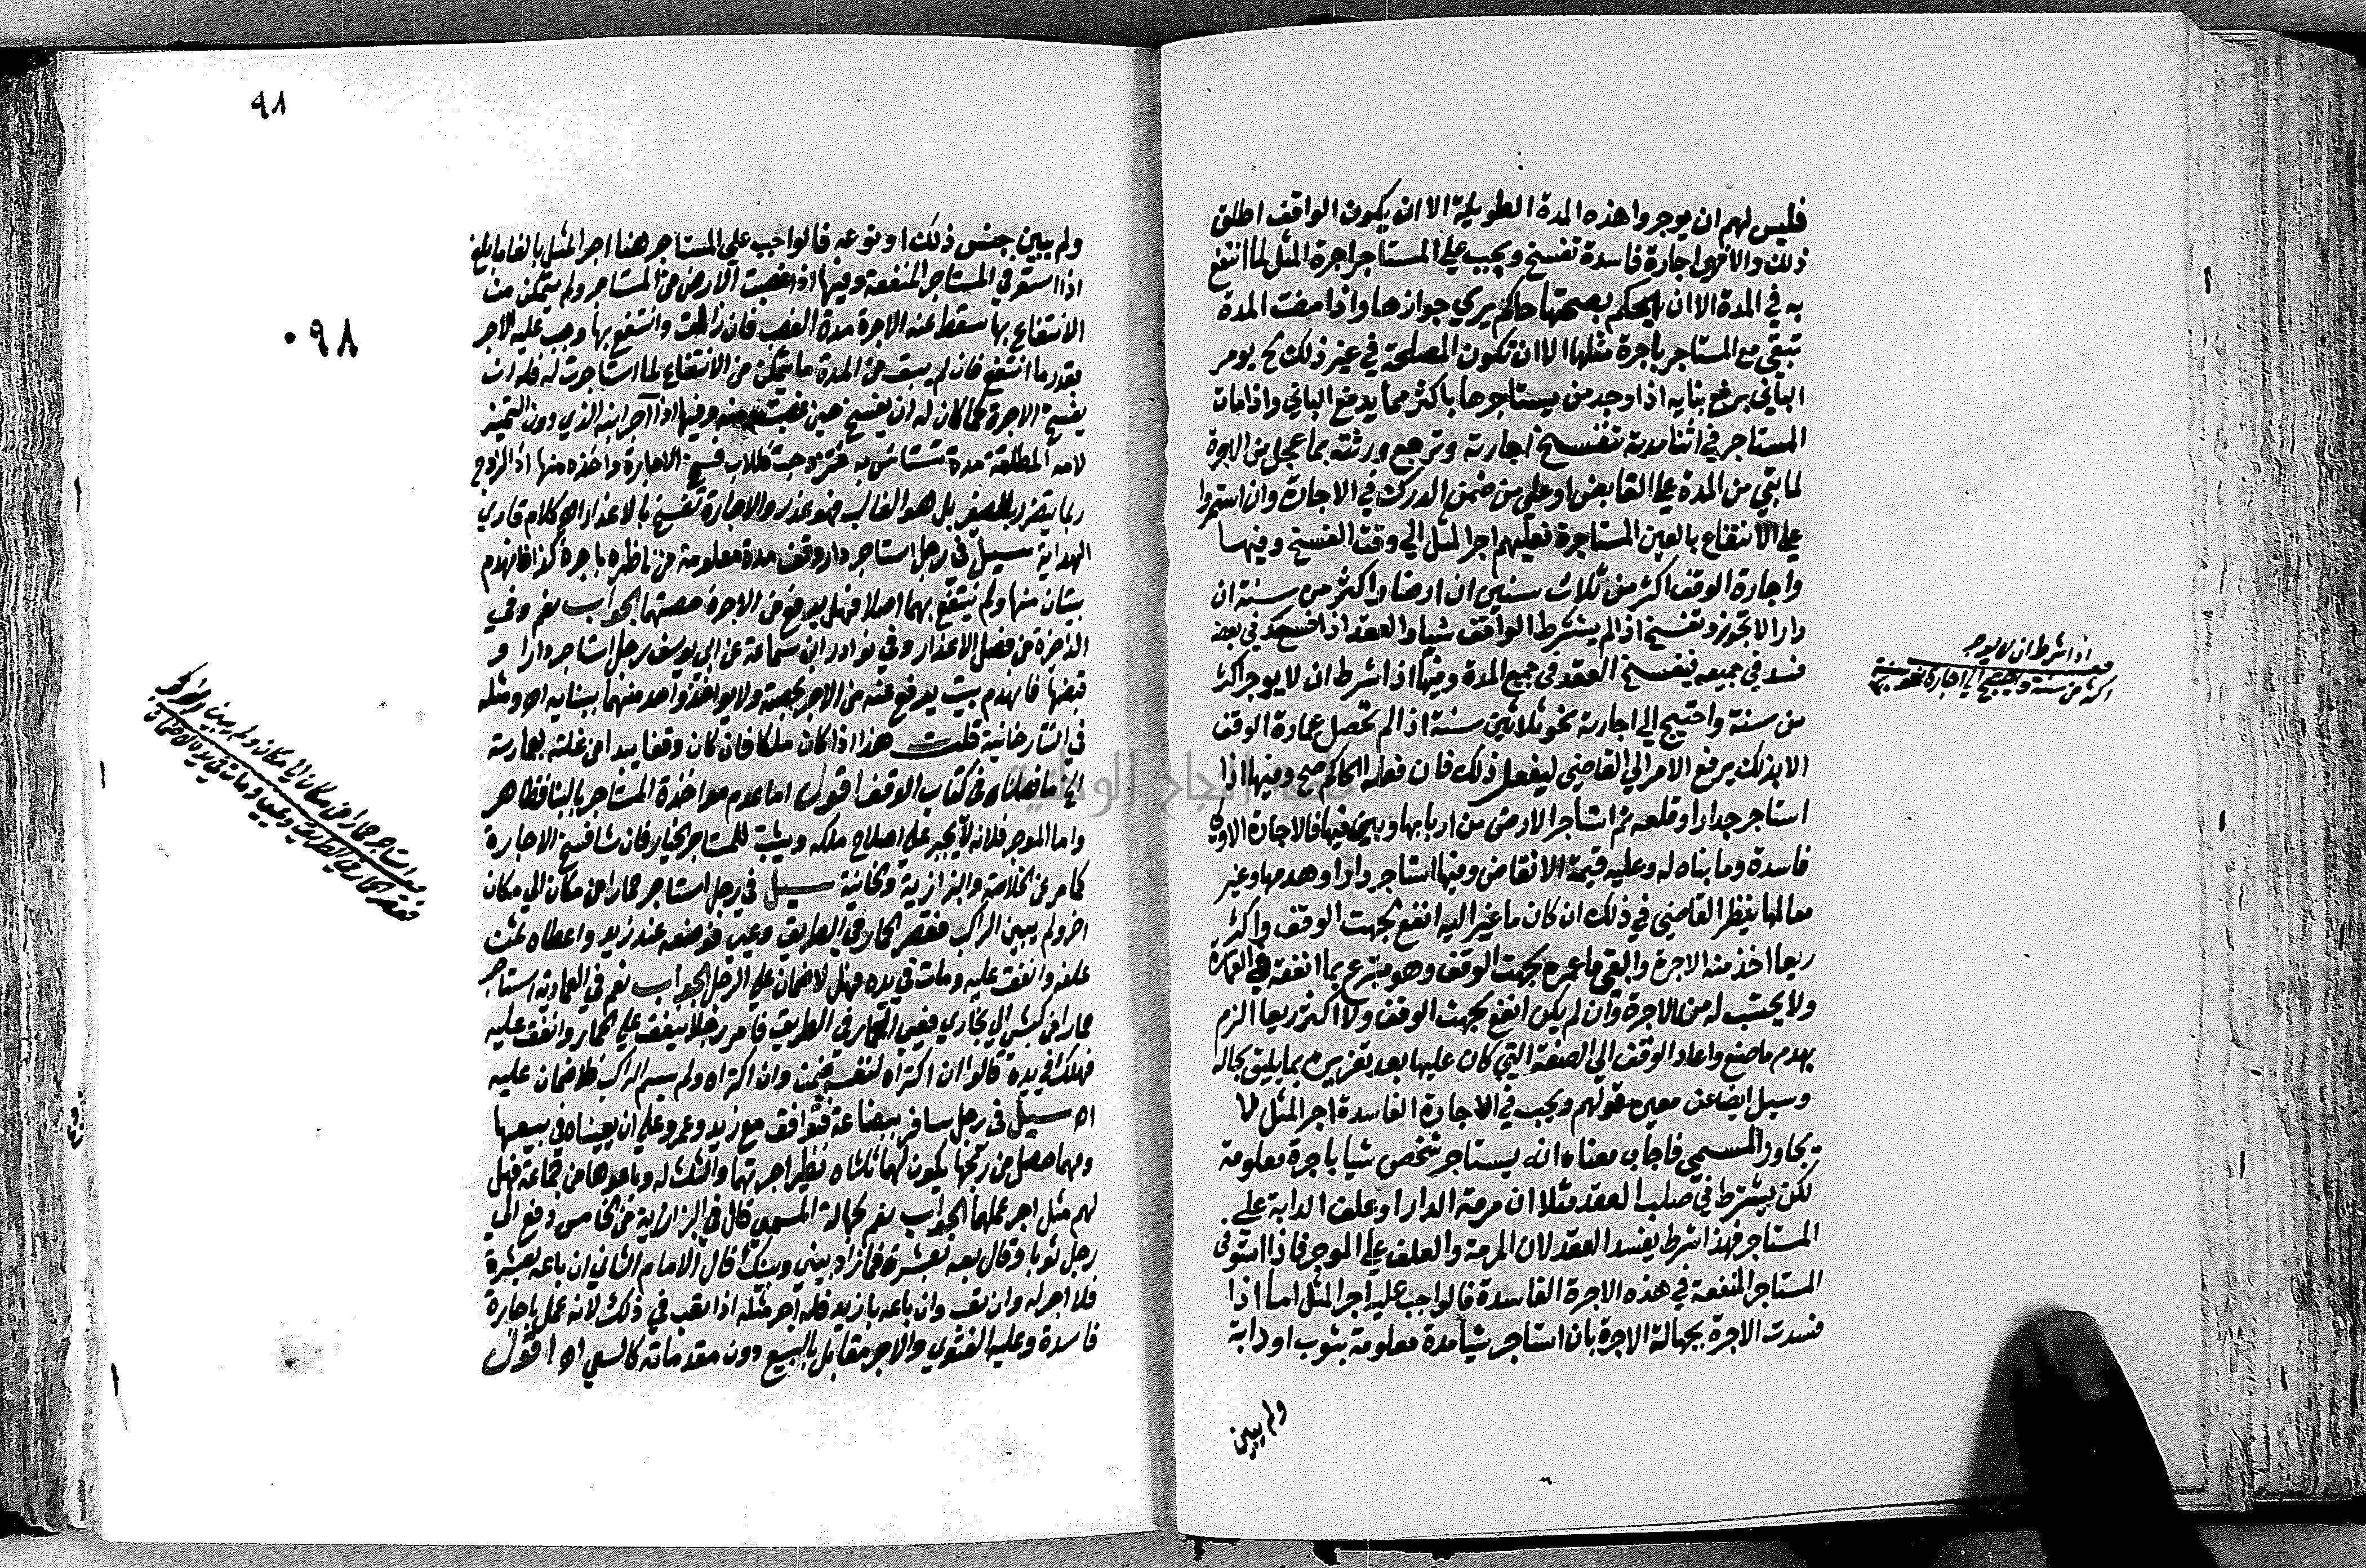 فليس لهم ان يوجروا هذه المدة الطويلة الا ان يكون الواقف اطلق
ذلك والا فهي اجارة فاسدة تفسخ ويجب علي المستاجر اجرة المثل لما انتفع
به في المدة الا ان يحكم بصحتها حاكم يري جوازها واذا مضت المدة
تبقي مع المستاجر باجرة مثلها الا ان تكون المصلحة في غير ذلك ح يومر
الباني برفع بنايه اذا وجد من يستاجرها باكثر مما يدفع الباني واذا مات
المستاجر في اثنا مدته تنفسخ اجارته وترجع ورثته بما عجل من الاجرة
لما بقي من المدة علي القابض او علي من ضمن الدرك في الاجارة وان استمروا
علي الانتفاع بالعين المستاجرة فعليهم اجر المثل الي وقت الفسخ وفيها
واجارة الوقف اكثر من ثلاث سنين ان ارضا واكثر من سنة ان
دارا لا تجوز وتفسخ اذا لم يشترط الواقف شيا والعقد اذا فسد في بعضه
فسد في جميعه فينفسخ العقد في جميع المدة وفيها اذا شرط ان لا يوجر اكثر
من سنة واحتيج الي اجارته نحو ثلاثين سنة اذا لم تحصل عمارة الوقف
الا بذلك يرفع الامر الي القاضي ليفعل ذلك فان فعله الحاكم صح وفيها اذا
استاجر جدارا وقلعه ثم استاجر الارض من اربابها وبني فيها فالاجارة الاولي
فاسدة وما بناه له وعليه قيمة الانقاض وفيها استاجر دارا وهدمها وغير
معالمها ينظر القاضي في ذلك ان كان ما غير اليه انفع لجهة الوقف واكثر
ريعا اخذ منه الاجرة وابقي ما عمره لجهة الوقف وهو متبرع بما انفقه في العمارة
ولا يحتسب له من الاجرة وان لم يكن انفع لجهت الوقف ولا اكثر ريعا الزم
بهدم ما صنع واعاد الوقف الي الصفة التي كان عليها بعد تعزيره بما يليق بحاله
وسيل ايضا عن معني قولهم ويجب في الاجارة الفاسدة اجر المثل لا
يجاوز المسمي فاجاب معناه انه يستاجر شخص شيا باجرة معلومة
لكن يشترط في صلب العقد مثلا ان مرمة الدار او علف الدابة علي
المستاجر فهذا شرط يفسد العقد لان المرمة والعلف علي الموجر فاذا استوفي
المستاجر المنفعة في هذه الاجرة الفاسدة فالواجب عليه اجر المثل اما اذا
فسدت الاجرة بجهالة الاجرة بان استاجر شيا مدة معلومة بثوب او دابة
ولم يبين
اذا شرط ان لا يوجر
اكثر من سنة واحتيج الي اجارته
٩٨
٠٩٨
ولم يبين جنس ذلك او نوعه فالواجب علي المستاجر هنا اجر المثل بالغا ما بلغ
اذا استوفي المستاجر المنفعة وفيها اذا غصبت الارض من المستاجر ولم يتمكن من
الانتفاع بها سقط عنه الاجرة مدة الغصب فان زالت وانتفع بها وجب عليه الاجر
بقدر ما انتفع فان لم يبق من المدة ما يتمكن من الانتفاع لما استاجرت له فله ان
يفسخ الاجرة كما كان له ان يفسخ حين غصبت منه وفيها اذا آجر ابنه الذي دون التميز
لامه المطلقة مدة تستانس به فتزوجت للاب فسخ الاجارة واخذه منها اذ الزوج
ربما يتضرر بالصغر بل هو الغالب فهو عذر والاجارة تفسخ بالاعذار اه كلام قاري
الهداية سيل في رجل استاجر دار وقف مدة معلومة من ناظره باجرة كذا فانهدم
بيتان منها ولم ينتفع بهما اصلا فهل يدفع من الاجرة حصتهما الجواب نعم وفي
الذخرة من فصل الاعذار وفي نوادر ابن سماعة عن ابي يوسف رجل استاجر دارا و
قبضها فانهدم بيت يدفع عنه من الاجر بحصته ولا يواخذ واحد منهما ببنايه اه ومثله
في التتارخانية قلت هذا اذا كان ملكا فان كان وقفا يبدا من غلته بعمارته
في كتاب الوقف اقول اما عدم مواخذة المستاجر بالبنا فظاهر
واما الموجر فلانه لا يجبر علي اصلاح ملكه ويثبت للمستاجر الخيار فان شا فسخ الاجارة
كما مر عن الخلاصة والبزازية والخانية سيل في رجل استاجر حمارا من مكان الي مكان
اخر ولم يبين الراكب فقصر الحمار في الطريق وعيي فوضعه عند زيد واعطاه ثمن
علفه وانفق عليه ومات في يده فهل لا ضمان علي الرجل الجواب نعم في العمادية استاجر
حمارا من كش الي بخاري فعيي الحمار في الطريق فامر رجلا ينفق علي الحمار وانفق عليه
فهلك في يده قالوا ان اكتراه لنفسه ضمن وان اكتراه ولم يسم الراكب فلا ضمان عليه
اه سيل في رجل سافر ببضاعة فتوافق مع زيد وعمرو علي ان يعيناه في بيعها
ومهما حصل من ربحها يكون لهما ثلثاه نظير اجرتهما والثلث له وباعوها من جماعة فهل
لهم مثل اجر عملهما الجواب نعم لجهالة المسمي قال في البزازية من الخامس دفع الي
رجل ثوبا وقال بعه بعشرة فما زاد بيني وبينك قال الامام الثاني ان باعه بعشرة
فلا اجر له وان تعب وان باعه بازيد فله اجر مثله اذا تعب في ذلك لانه عمل باجارة
فاسدة وعليه الفتوي والاجر مقابل بالبيع دون مقدماته كالسعي اه اقول
استاجر حمارا من مكان الي مكان ولم يبين الراكب
فقصر الحمار في الطريق وعيي ومات في يد